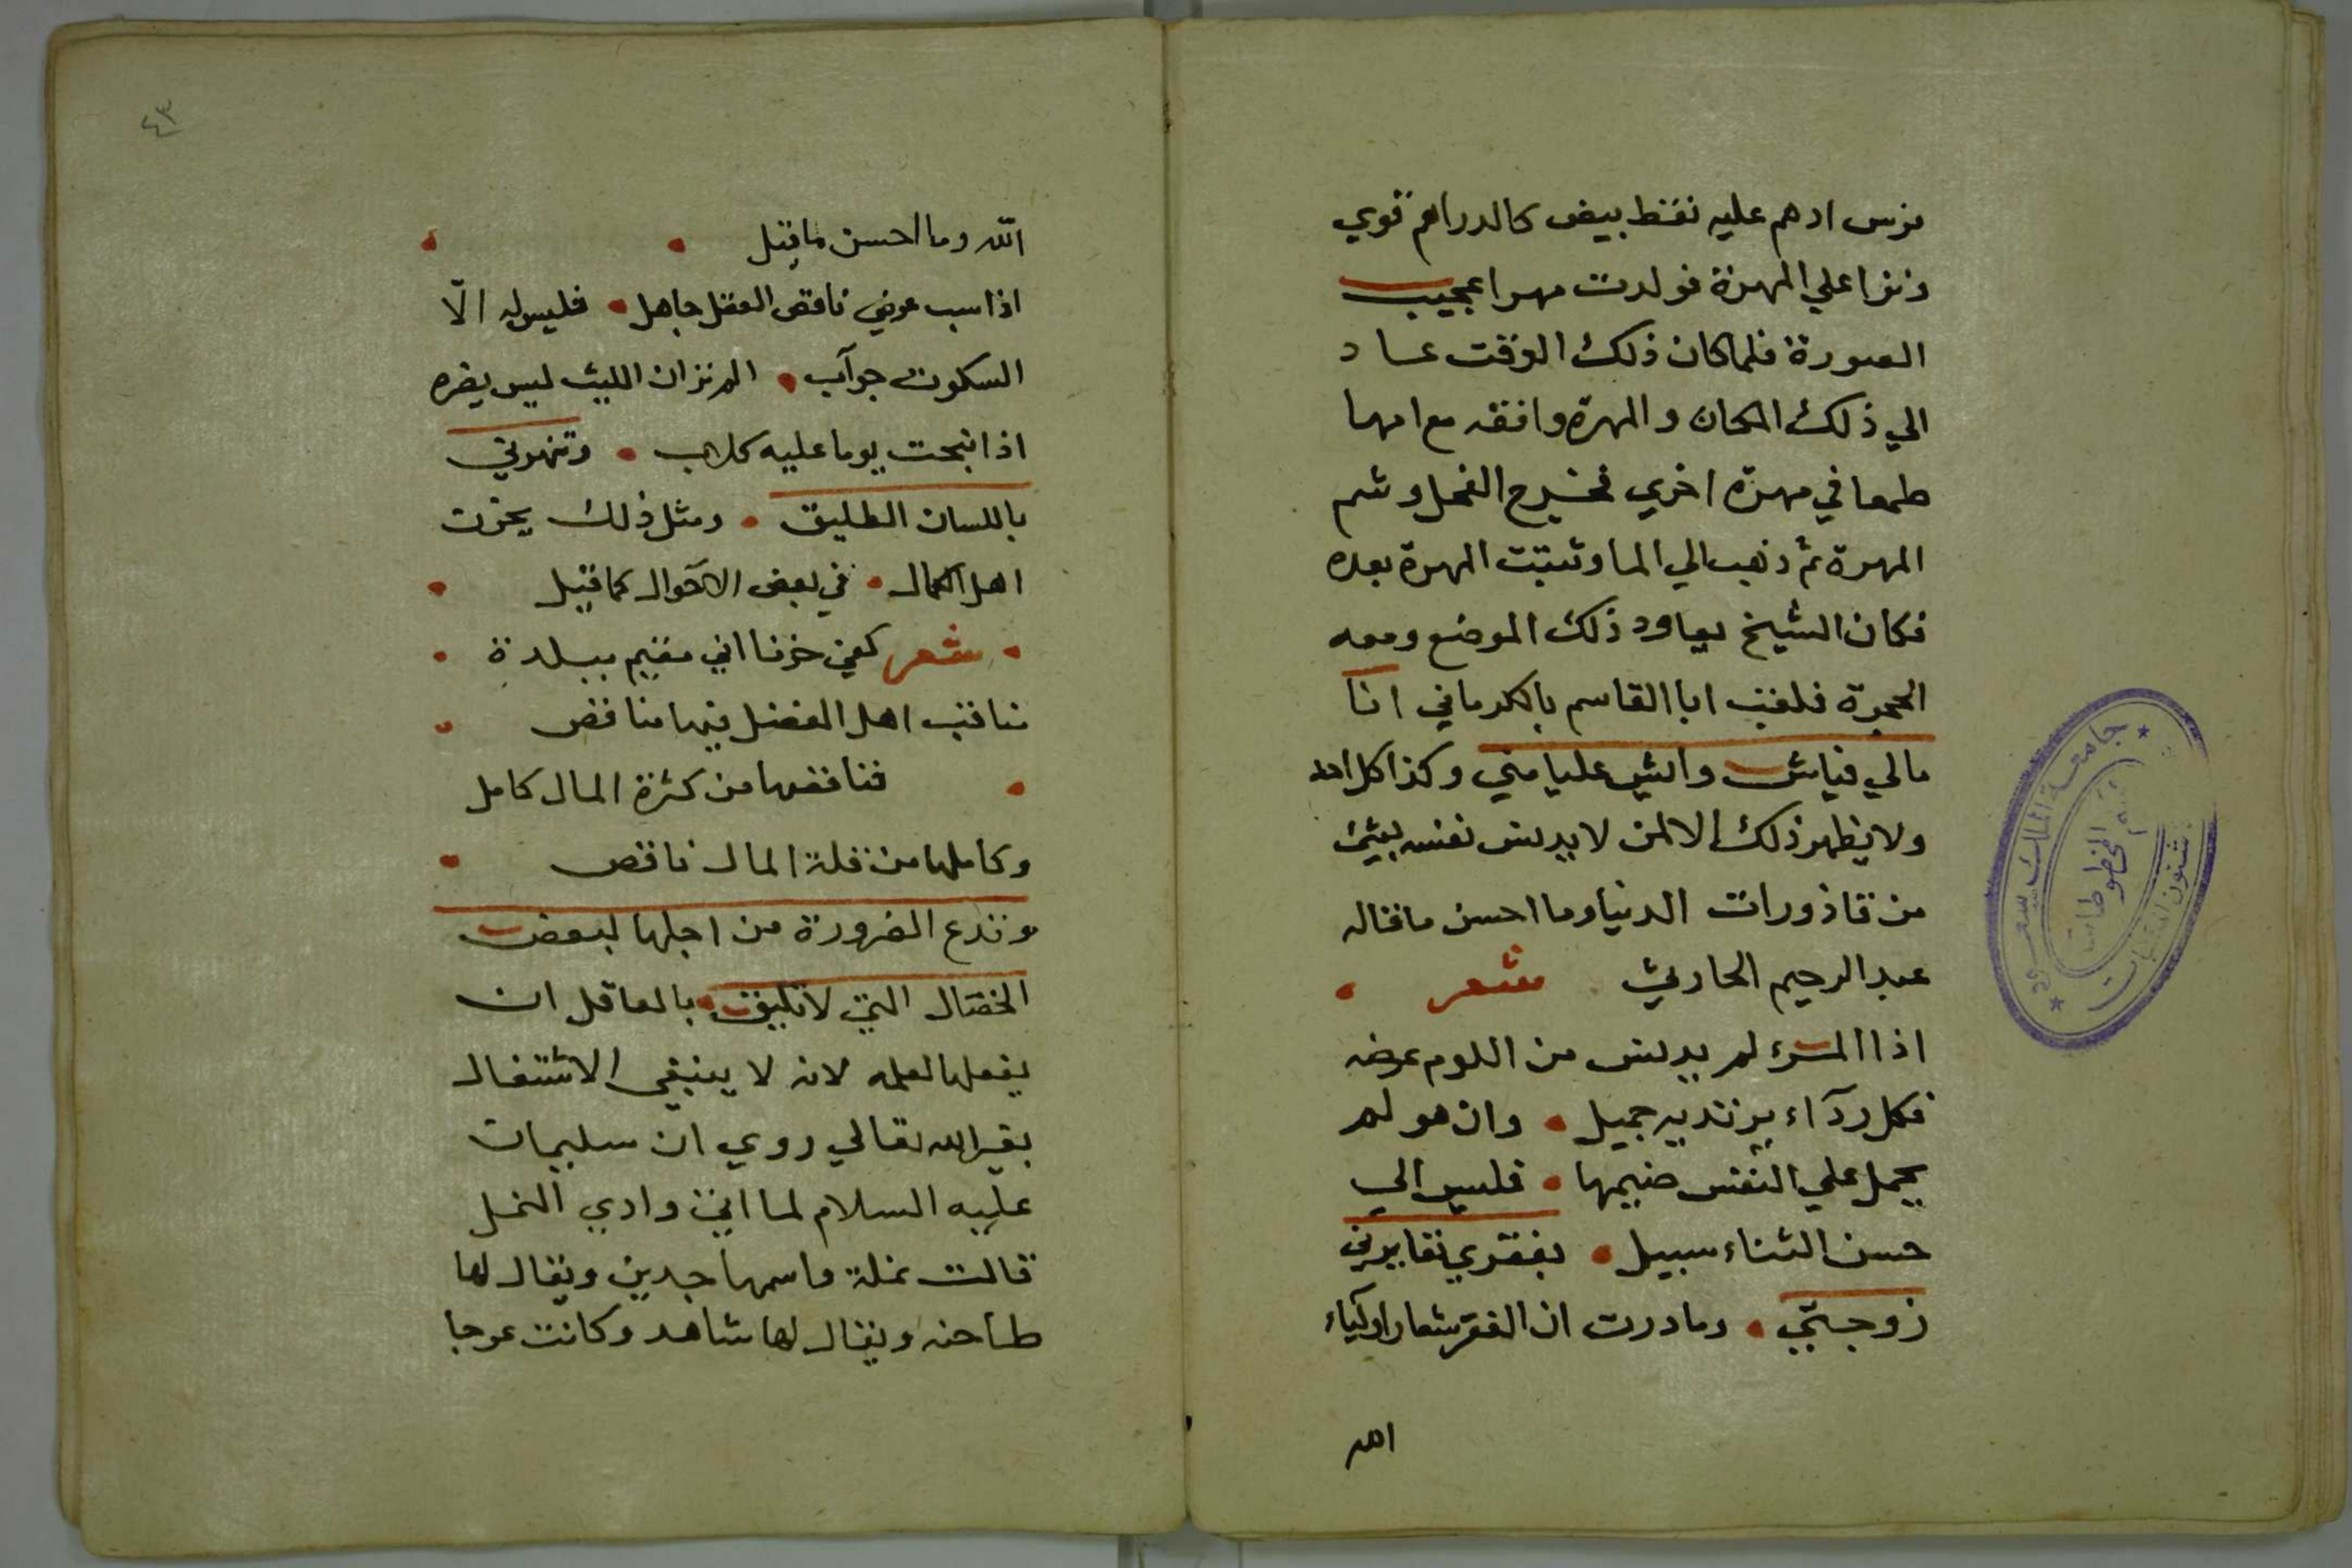 فرس ادهم عليه نقط بيض كالدراهم قوي
ونزا علي المهرة فولدت مهرا عجيب
الصورة فلما كان ذلك الوقت عاد
الي ذلك المكان والمهرة وافقه مع امها
طمعا في مهرة اخري فخرج الفحل وشم
المهرة ثم ذهب الي الما وتبتت المهرة بعده
فكان الشيخ يعاود ذلك الموضع ومعه
الحجرة فلقب ابا القاسم بالكرماني انا
مالي فياش واليش عليا مني وكذا كل احد
ولا يظهر ذلك الا لمن لا يدنس نفسه بشيء
من قاذورات الدنيا وما احسن ما قاله
عبد الرحيم الحارثي شعر
اذا المرء لم يدنس من اللوم عرضه
فكل ردآء يرتديه جميل • وان هو لم
يحمل علي النفس ضيمها • فليس الي
حسن الثناء سبيل • بفقري تعايرني
زوجتي • وما درت ان الفقر شعار اوليآء
الله
٤٣
الله وما احسن ما قيل
اذا سب عرضي ناقص العقل جاهل • فليس له الا
السكوت جوآب • الم تر ان الليث ليس يضره
اذا نبحت يوما عليه كلاب • وتنهرني
باللسان الطليق • ومثل ذلك يحزن
اهل الكمال • في بعض الاحوال كما قيل
شعر كفي حزنا اني مقيم ببلدة
مناقب اهل الفضل فيها مناقص
فناقصها من كثرة المال كامل
وكاملها من قلة المال ناقص
وتدع الضرورة من اجلها لبعض
الخصال التي لا تليق • بالعاقل ان
يفعلها لعلمه لانه لا ينبغي الاشتغال
بغير الله تعالي روي ان سليمان
عليه السلام لما اتي وادي النمل
قالت نملة واسمها جدين ويقال لها
طاحنه ويقال لها شاهد وكانت عوجا
جامعة الملك سعود
قسم المخطوطات
شئون المكتبات